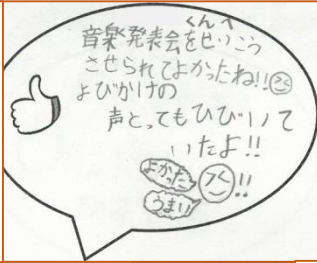 くんへ
音楽発表会をせいこう
させられてよかったね!!
よびかけの
声とってもひびいて
いたよ!!
よかった
うまい
!!